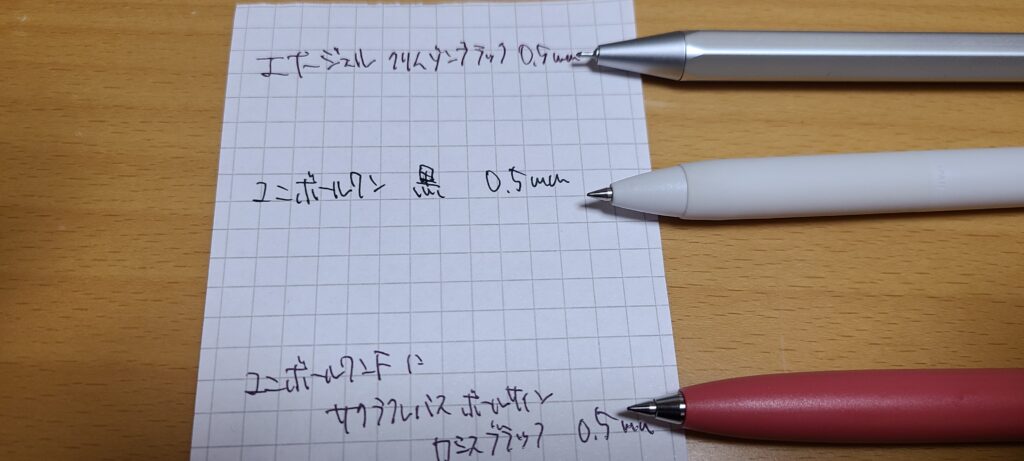 エナージェル クリムゾンブラック 0.5mm
ユニボールワン 黒 0.5mm
ユニボールワンF に
サクラクレパス ボールサイン
カシスブラック 0.5mm